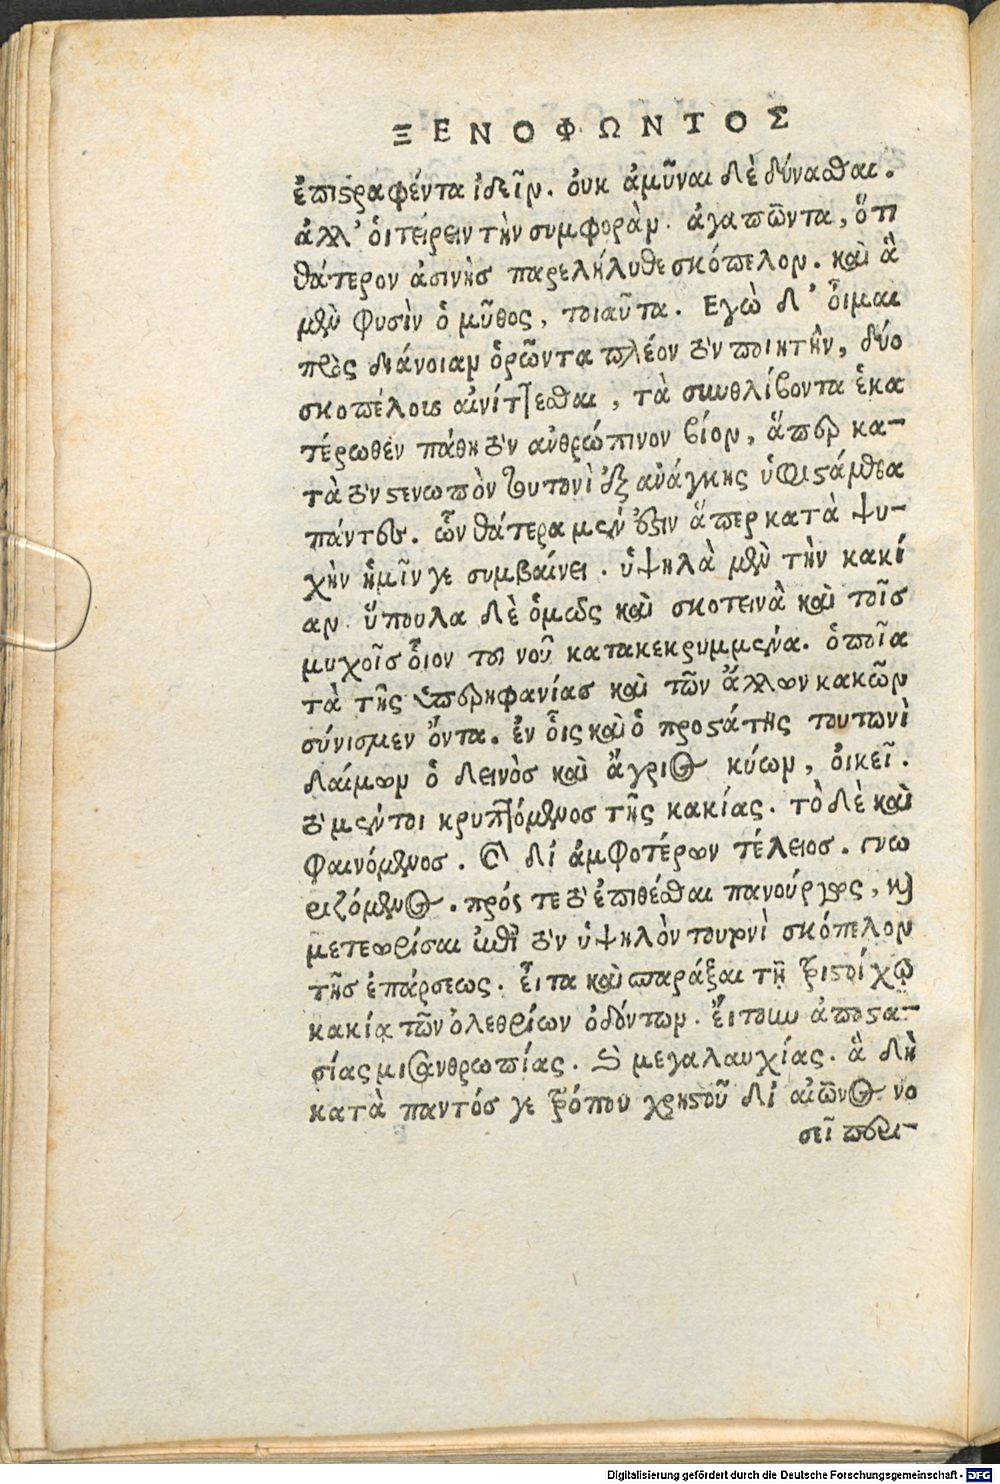 ΞΕΝΟΦΩΝΤΟΣ
ἐπιστραφέντα ἰδεῖν. ὀυκ ἀμῦναι δὲ δύνασθαι.
ἀλλ' ὀιτείρειν τὴν συμφορὰν. ἀγαπῶντα, ὅτι
θάτερον ἀσινὴς παρελήλυθε σκόπελον. καὶ ἃ
μὲν φυσὶν ὁ μῦθος, τοιαῦτα. Εγὼ δ' ὀίμαι
πρὸς διάνοιαν ὁρῶντα πλέον τὸν ποιητὴν, δύο
σκοπέλοις αἰνίττεσθαι, τὰ συνθλίβοντα ἑκα
τέρωθεν πάθη τὸν ἀνθρώπινον βίον, ἅπερ κα-
τὰ τὸν στενωπὸν τουτονὶ ἐξ ἀνάγκης ὑφιστάμεθα
πάντες. ὧν θάτερα μέν ἐστιν ἅπερ κατὰ ψυ-
χὴν ἡμῖν γε συμβαίνει. ὑψηλὰ μὲν τὴν κακί
αν. ὕπουλα δὲ ὅμως καὶ σκοτεινὰ καὶ τοῖς
μυχοῖς ὅιον του νοῦ κατακεκρυμμένα. ὁποῖα
τὰ τῆς ὑπερηφανίας καὶ τῶν ἄλλων κακῶν
σύνισμεν ὄντα. ἐν ὅις καὶ ὁ προστάτης τουτωνὶ
δαίμων ὁ δεινὸς καὶ ἄγριος κύων, ὀικεῖ.
τὸ μέντοι κρυπτόμενος τῆς κακίας. τὸ δὲ καὶ
φαινόμενος. δι ἀμφοτέρων τέλειος. γνω
ριζόμενος. πρός τε τὸ ἐπιθέσθαι πανούργως, καὶ
μετεωρίσαι ἐπὶ τὸν ὑψηλὸν τουτονὶ σκόπελον
τῆς ἐπάρσεως. εἶτα καὶ σπαράξαι τῇ τριστοίχῳ
κακίᾳ τῶν ὀλεθρίων ὀδόντων. ἤτουν ἀποστα-
σίας μισανθρωπίας. καὶ μεγαλαυχίας. ἃ δὴ
κατὰ παντός γε τρόπου χρηστοῦ δι αἰῶνος νο
σεῖ περι-
Digitalisierung gefördert durch die Deutsche Forschungsgemeinschaft - DFG